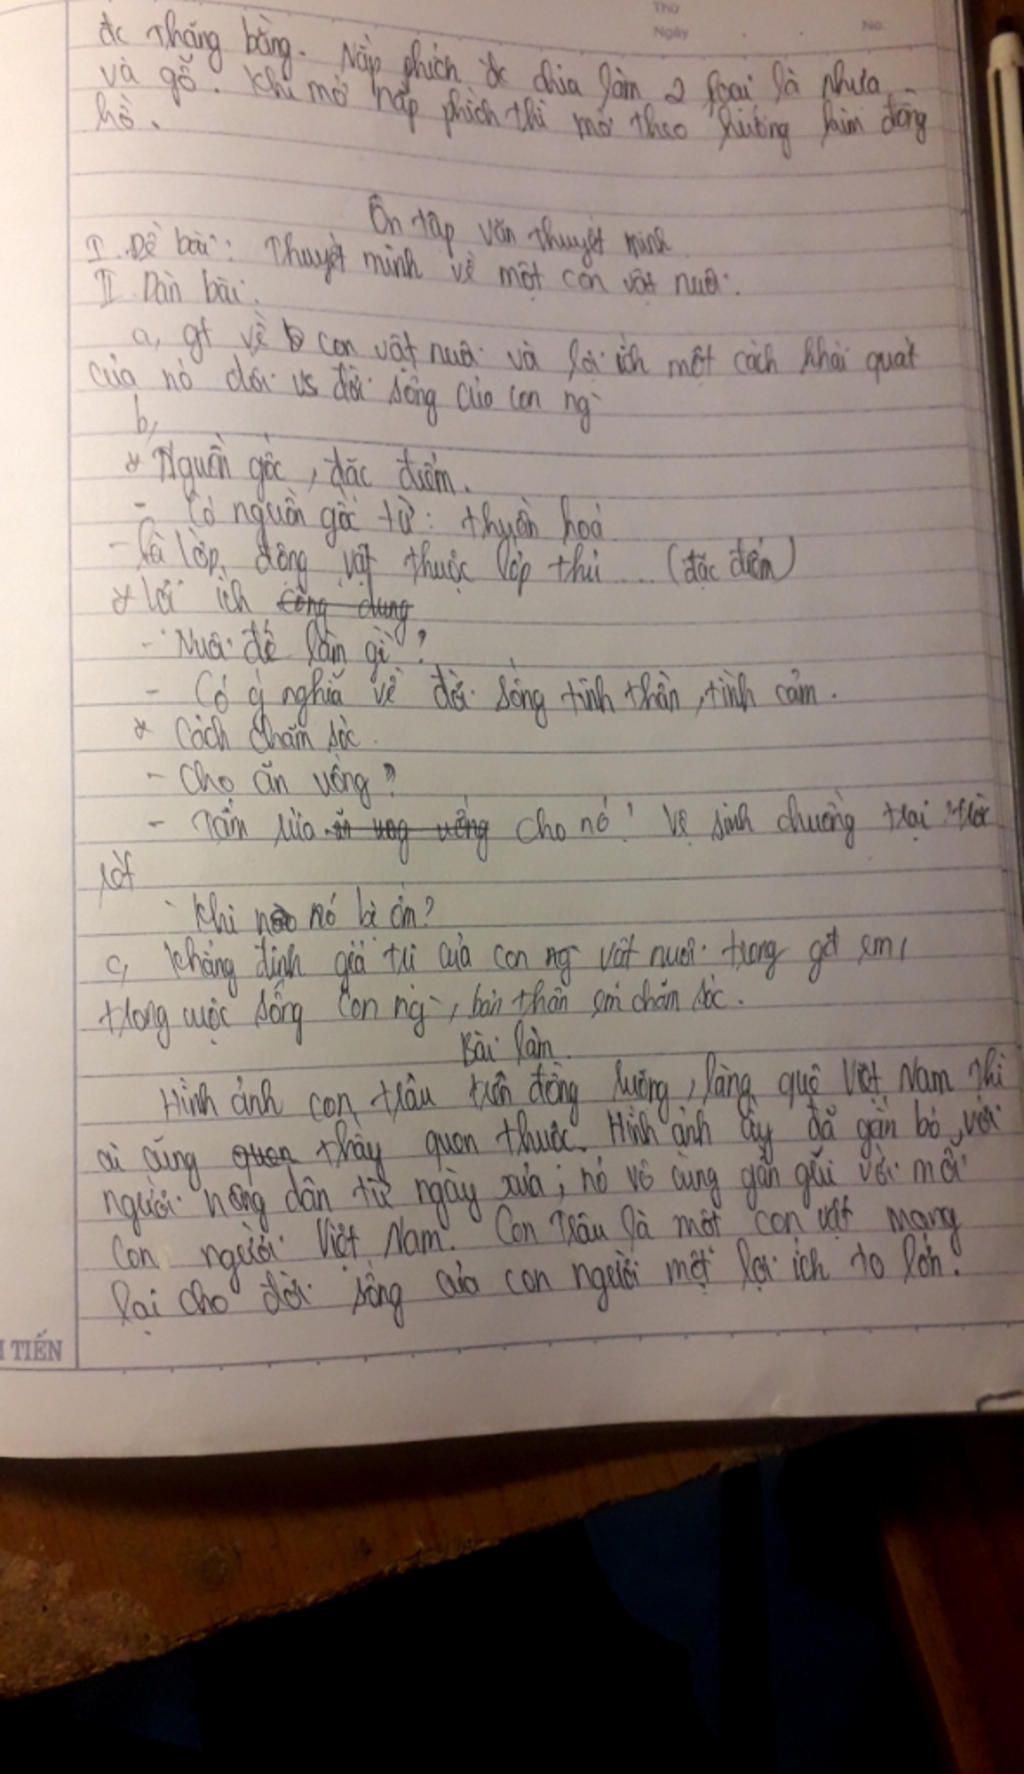 Thứ
Ngày No.
đc thăng bằng. Nắp phích đc chia làm 2 loại là nhựa
và gỗ. Khi mở nắp phích thì mở theo hướng kim đồng
hồ.
Ôn tập văn thuyết minh
I. Đề bài: Thuyết minh về một con vật nuôi.
II Dàn bài.
a, gt về con vật nuôi và lợi ích một cách khái quát
của nó đối vs đời sống của con ng`
b,
* Nguồn gốc, đặc điểm.
- Có nguồn gốc từ: thuần hoá
- Là lớp động vật thuộc lớp thú .... (đặc điểm)
* Lợi ích công dụng
- Nuôi để làm gì?
- Có ý nghĩa về đời sống tinh thần, tình cảm.
* Cách chăm sóc.
- Cho ăn uống?
- Tắm rửa ăn ung uống cho nó! Vệ sinh chuồng trại
Khi nào nó bị ốm?
c, Khẳng định giá trị của con ng` vật nuôi trong gđ em,
trong cuộc sống con ng`, bản thân em chăm sóc.
Bài làm
Hình ảnh con trâu trên đồng ruộng, làng quê Việt Nam thì
ai cũng quen thấy quen thuộc. Hình ảnh ấy đã gắn bó với
người nông dân từ ngày xưa; nó vô cùng gần gũi với mỗi
con người Việt Nam. Con Trâu là một con vật mang
lại cho đời sống của con người một lợi ích to lớn.
TIẾN